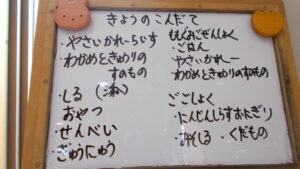 きょうのこんだて
・やさいかれーらいす
・わかめときゅうりの
すのもの
・しる
おやつ
・せんべい
・ぎゅうにゅう
・ごはん
・やさいかれー
・わかめときゅうりのすのもの
ごごしょく
・にんじんしらすおにぎり
・みそしる ・くだもの